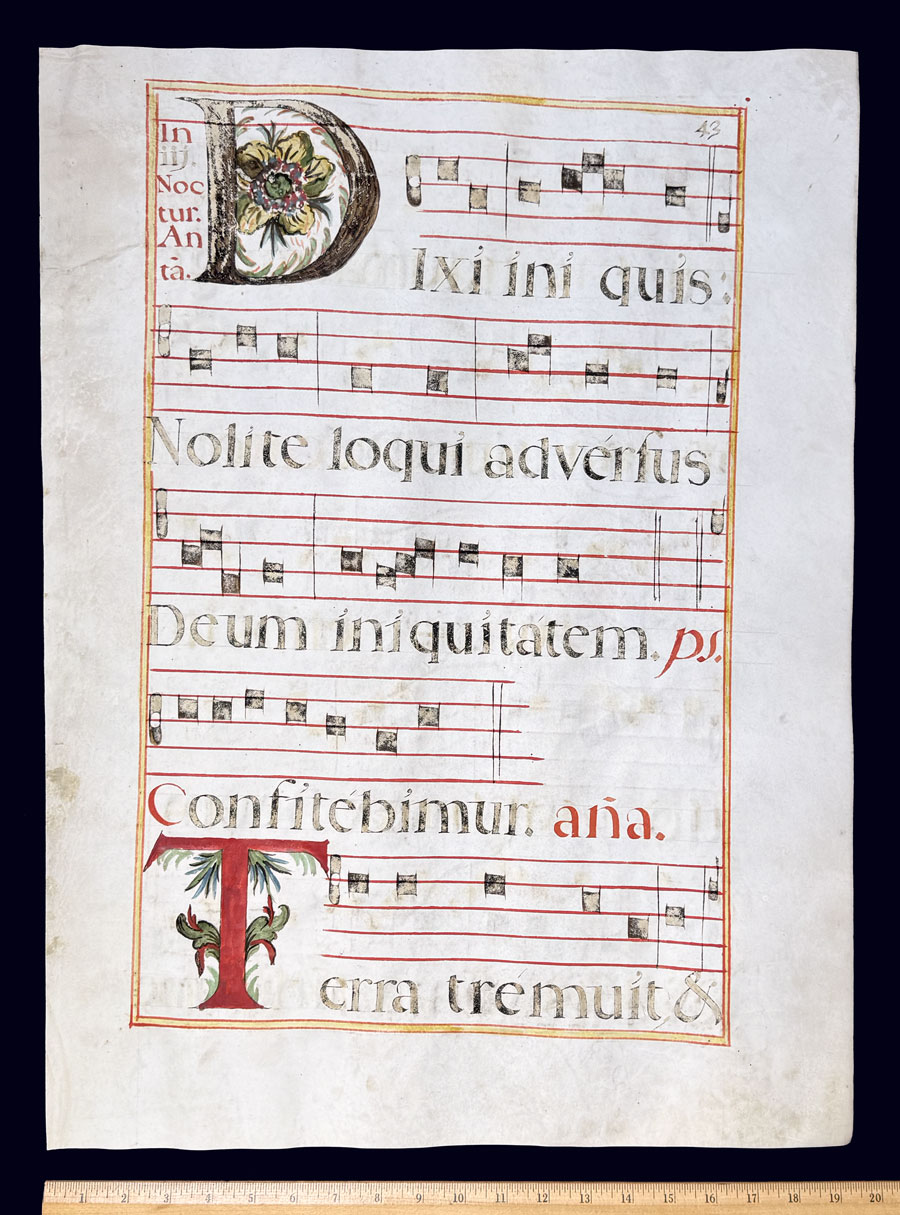 43
In
iij.
Noc
tur.
An
tã.
DIxi ini quis:
Nolite loqui advérſus
Deum iniquitátem. ps.
Confitébimur. aña.
Terra trémuit &
1 2 3 4 5 6 7 8 9 10 11 12 13 14 15 16 17 18 19 20